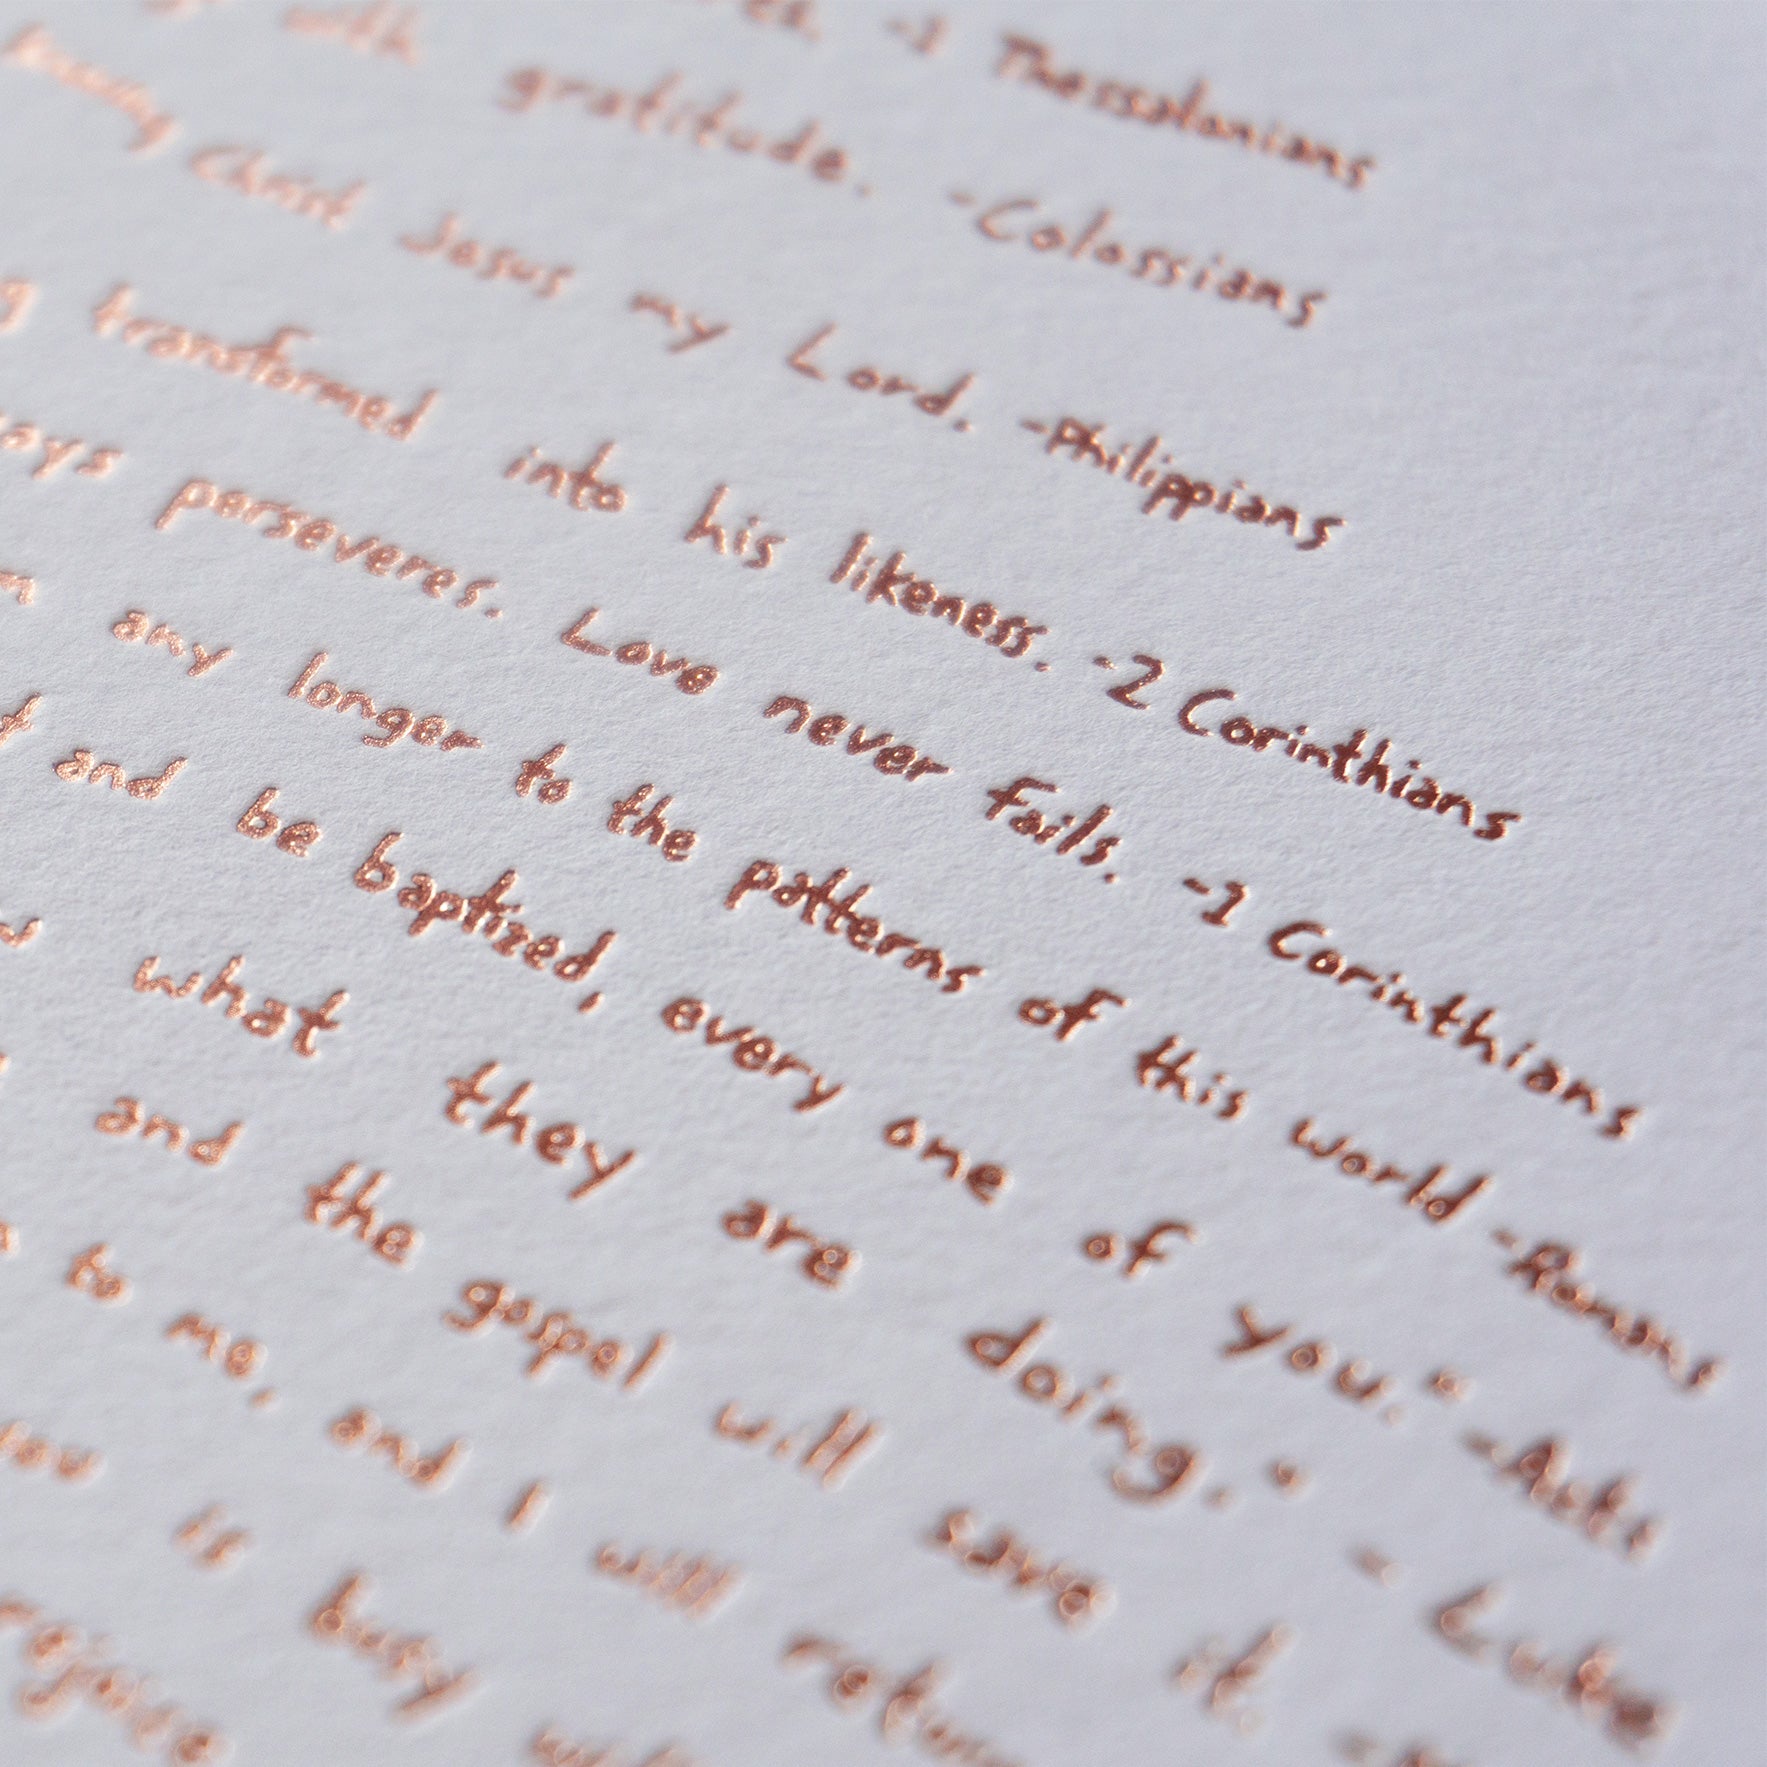 -1 Thessalonians
with gratitude. -Colossians
knowing Christ Jesus my Lord. -Philippians
transformed into his likeness. -2 Corinthians
perseveres. Love never fails. -1 Corinthians
any longer to the patterns of this world -Romans
and be baptized, every one of you." -Acts
what they are doing." - Luke
and the gospel will save it.
to me, and I will return
is busy
rejoice